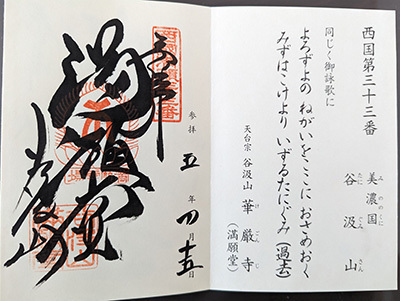 西国第三十三番
美濃国
みののくに
谷汲山
たにぐみさん
同じく御詠歌に
よろずよの ねがいをここに おさめおく
みずはこけより いずるたにぐみ (過去)
天台宗 谷汲山 華厳寺
けごんじ
(満願堂)
奉拝
参拝 五年 四月 十五日
満願堂
谷汲山